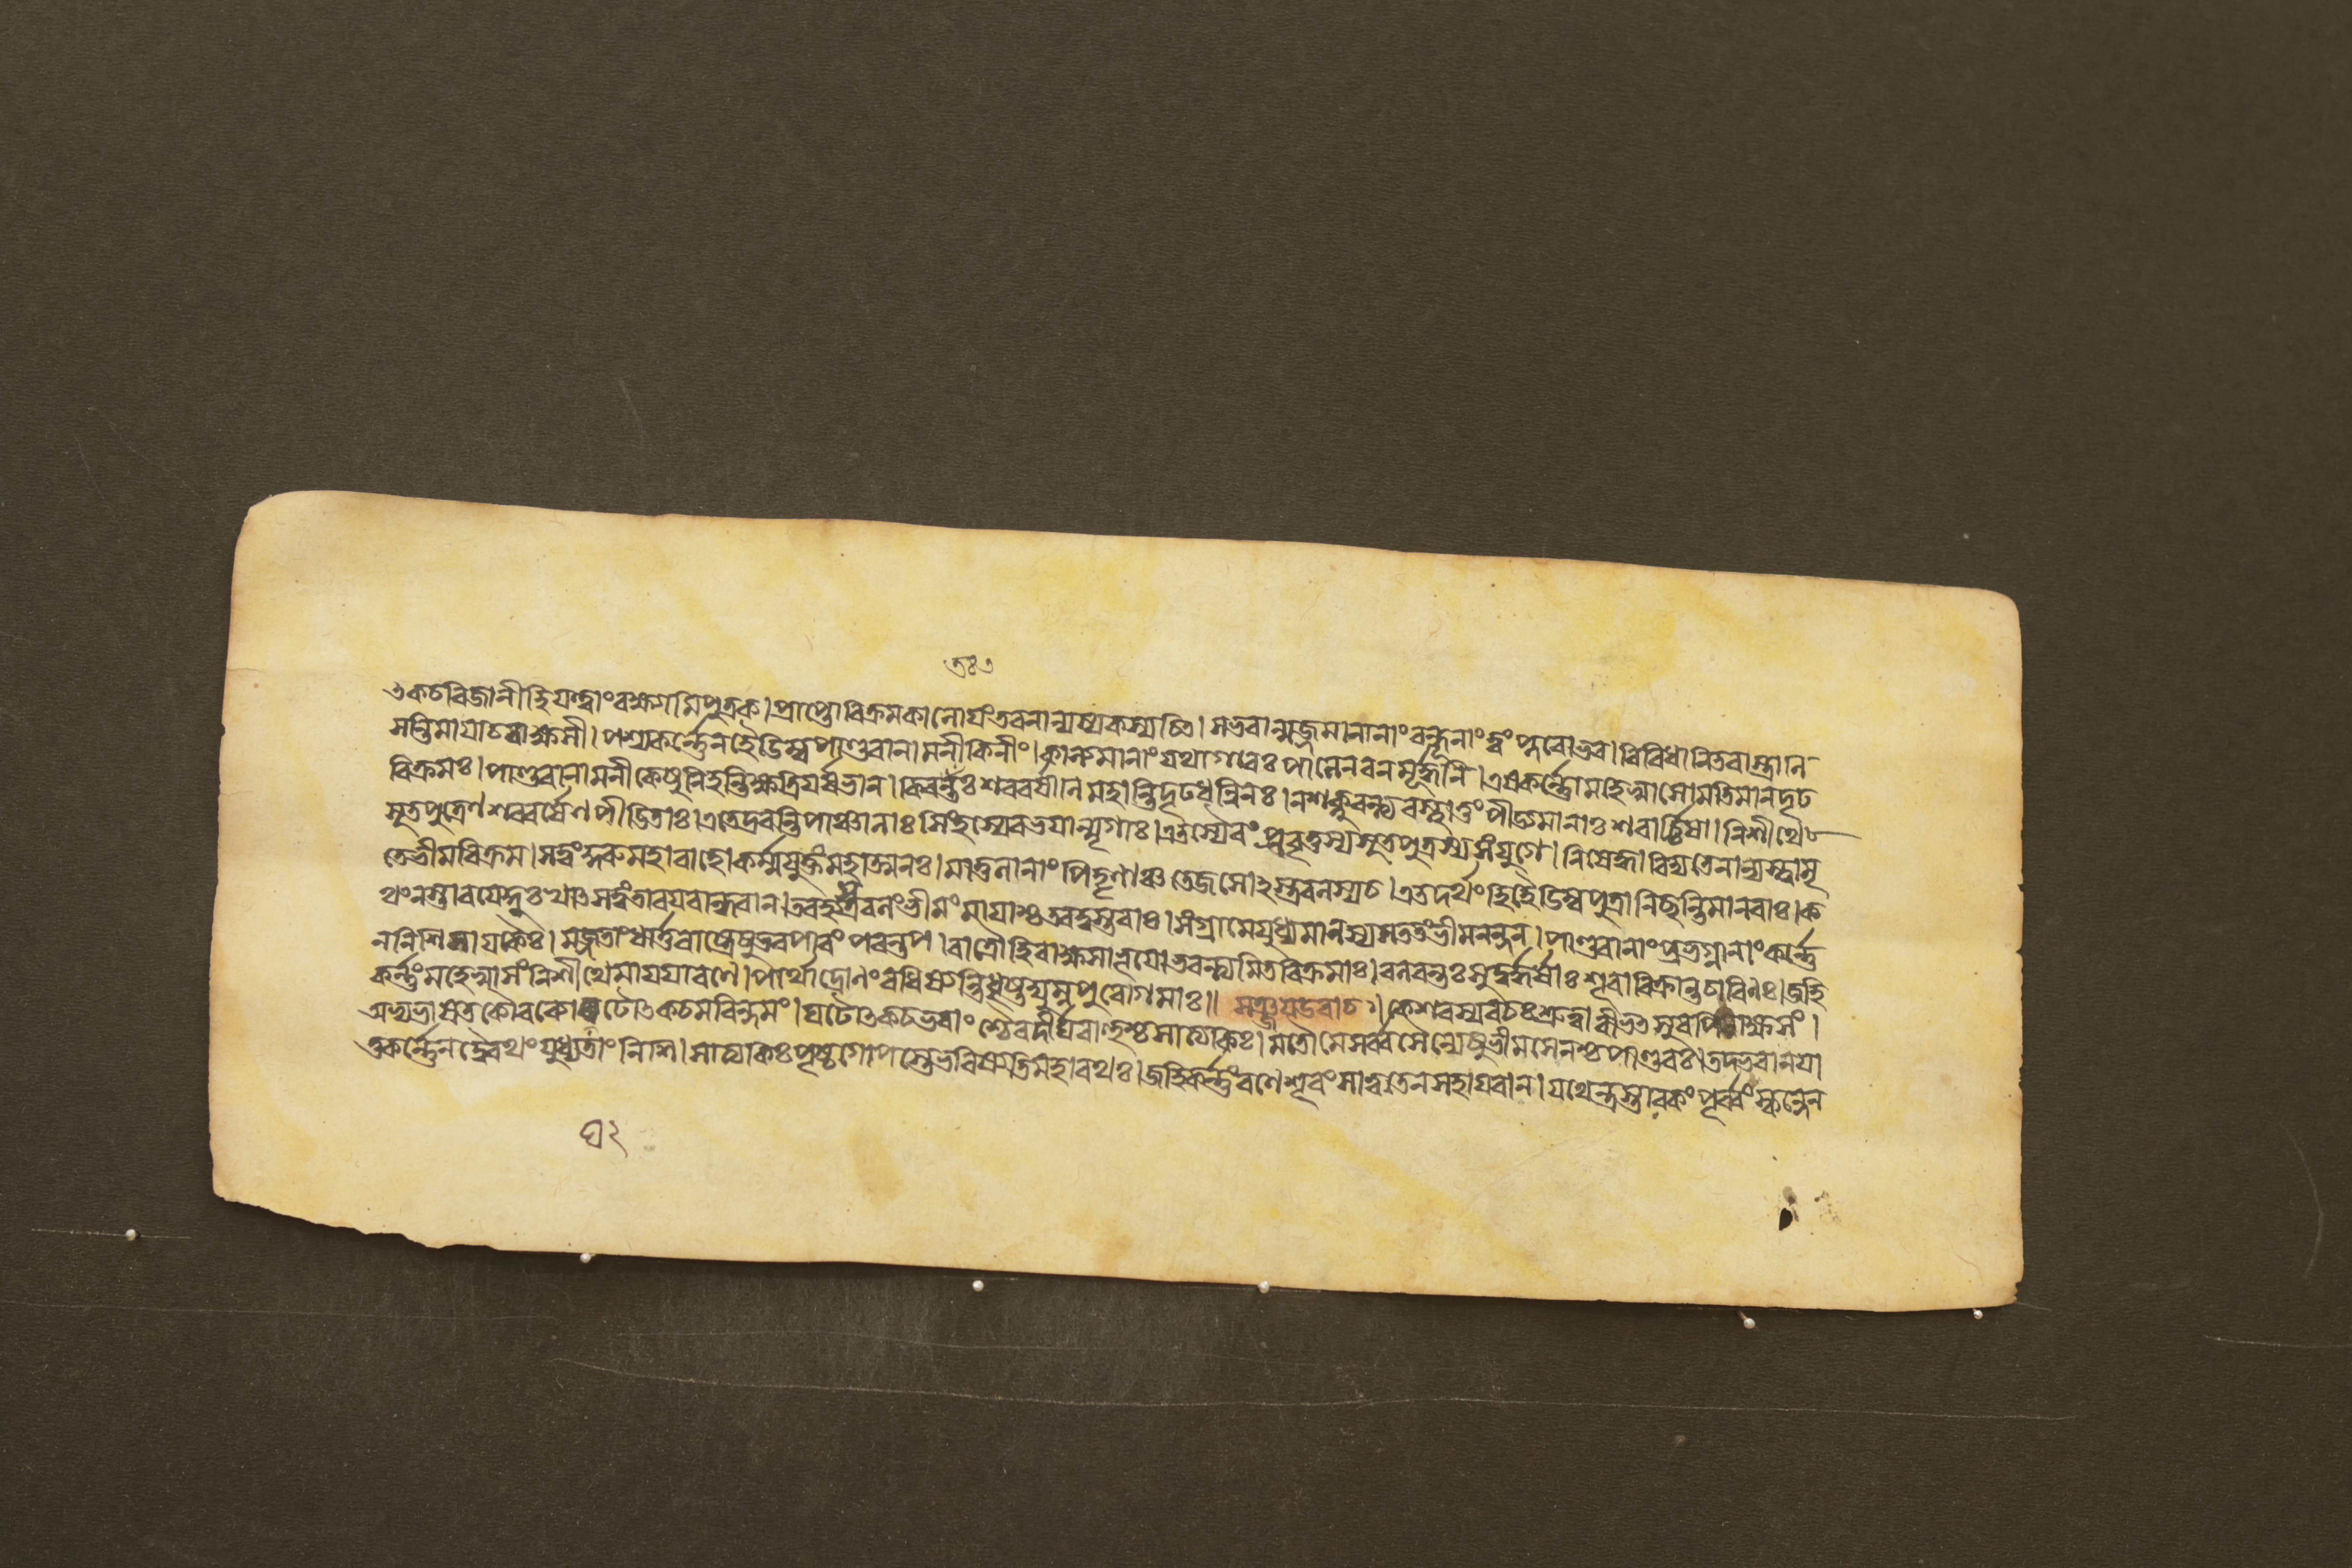 ত্কচবিজানীহিযত্ত্বাংবক্ষ্যামিপুত্রক।প্রাপ্তোবিক্রমকালোয়ংতবনান্যস্যকস্যচিৎ।সভবান্মজ্জমানানাংবন্ধূনাংত্বংপ্লবোভব।বিবিধানিতবাস্ত্রানি
সন্তিমায়াচরাক্ষসী।পশ্যকর্ন্নেনহৈডিম্বপাণ্ডবানামনীকিনীং।কাল্যমানাংযথাগাবঃপালেনরনমূর্দ্ধনি।এষকর্ন্নোমহেষ্বাসোমতিমানদৃঢ
বিক্রমঃ।পাণ্ডবানামনীকেষুনিহন্তিক্ষত্রিয়র্ষভান।কিরন্তঃশরবর্ষানিমহান্তিদৃঢধন্বিনঃ।নশক্নুবন্ত্যবস্থাতুংপীড্যমানাঃশরার্চ্চিষা।নিশীথে
সূতপুত্রেণশরবর্ষেণপীডিতাঃ।এতেদ্রবন্তিপাঞ্চালাঃসিংহস্যেবভয়ান্মৃগাঃ।এতস্যৈবংপ্রবৃত্তস্যসূতপুত্রস্যসংযুগে।নিষেদ্ধাবিদ্যতেনান্যস্ত্বামৃ
তেভীমবিক্রম।সত্বংকুরুমহাবাহোকর্ম্মযুক্তমহাত্মনঃ।মাতুলানাংপিতৄণাঞ্চতেজসোঽস্ত্রবলস্যচ।এতদর্থংহিহৈডিম্বপুত্রানিছন্তিমানবাঃ।ক
থংনস্তারয়েদ্দুঃখাৎসত্বংতারয়বান্ধবান।তবহ্যস্ত্রবলংভীমংমায়াশ্চতবদুস্তরাঃ।সংগ্রামেযুধ্যমানস্যসততংভীমনন্দন।পাণ্ডবানাংপ্রভগ্নানাংকর্ন্নে
ননিশিসায়কৈঃ।মজ্জতাংধার্ত্তরাষ্ট্রেষুভবপারংপরন্তপ।রাত্রৌহিরাক্ষসাভূয়োভবন্ত্যমিতবিক্রমাঃ।বলবন্তঃসুদুর্দ্ধর্ষাঃশূরাবিক্রান্তচারিণঃ।জহি
কর্ন্নংমহেষ্বাসংনিশীথেমায়য়ারণে।পার্থাদ্রোনংবধিষ্যন্তিধৃষ্টদ্যুম্নপুরোগমাঃ॥সঞ্জয়উবাচ॥কেশবস্যবচঃশ্রুত্বাবীভৎসুরপিরাক্ষসং।
অভ্যভাষতকৌরব্যোঘটোৎকচমরিন্দমং।ঘটোৎকচভবাংশ্চৈবদীর্ঘবাহুশ্চসাত্যকিঃ।মতৌমেসর্ব্বসৈন্যেষুভীমসেনশ্চপাণ্ডবঃ।তদ্ভবানয়া
তুকর্ন্নেনদ্বৈরথংযুধ্যতাংনিশি।সাত্যকিঃপৃষ্ঠগোপস্তেভবিষ্যতিমহারথঃ।জহিকর্ন্নংরণেশূরংসাত্বতেনসহায়বান।যথেন্দ্রস্তারকংপূর্ব্বংস্কন্দেন